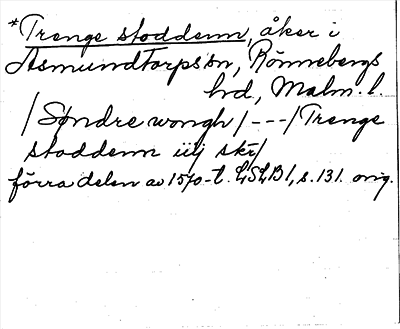 *Trenge stoddenn, åker i
Asmundtorps sn, Rönnebergs
hrd, Malm. l.
/Søndre wongh/---/Trenge
stoddenn iiij skr/
förra delen av 1570-t. LSLB1, s. 131. orig.